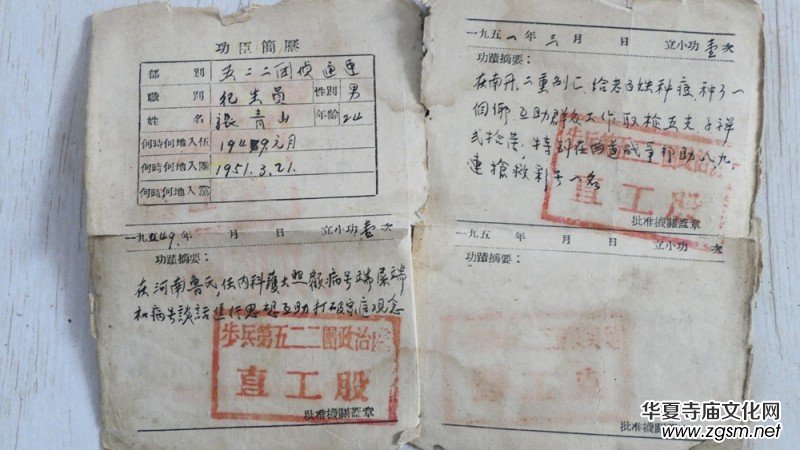 功臣簡歷
部別 五二二团 連
職別 衛生員 性別 男
姓名 張青山 年齡 24
何時何地入伍 1949元月
何時何地入團 1951.3.21.
何時何地入黨
一九49年 月 日 立小功壹次
功蹟摘要:
在河南魯 任内科護士照顧病号端屎端
和病号談話進行思想互助打破家庭观念
步兵第五二二團政治處
直工股
批准機關蓋章
一九五一年三月 日 立小功壹次
功蹟摘要:
在南丹 給老百姓种痘 种了一
個鄉 互助群众工作取枪五支子弹
帮助八九
連搶救彩号一名
步兵第五二二
直工股
批准機關蓋章
一九五 年 月 日 立小功 次
功蹟摘要:
批准機關蓋章
华夏寺庙文化网
www.zgsm.net